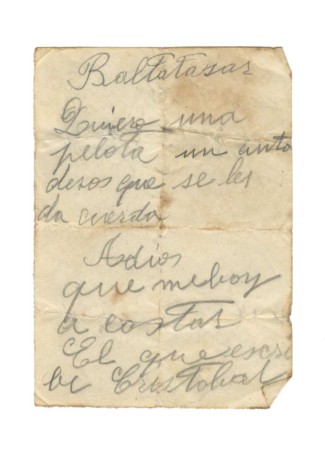 Baltatasar
Quiero una
pelota un auto
desos que se les
da cuerda
Adios
que meboy
a costar
El que escri
be Cristobal